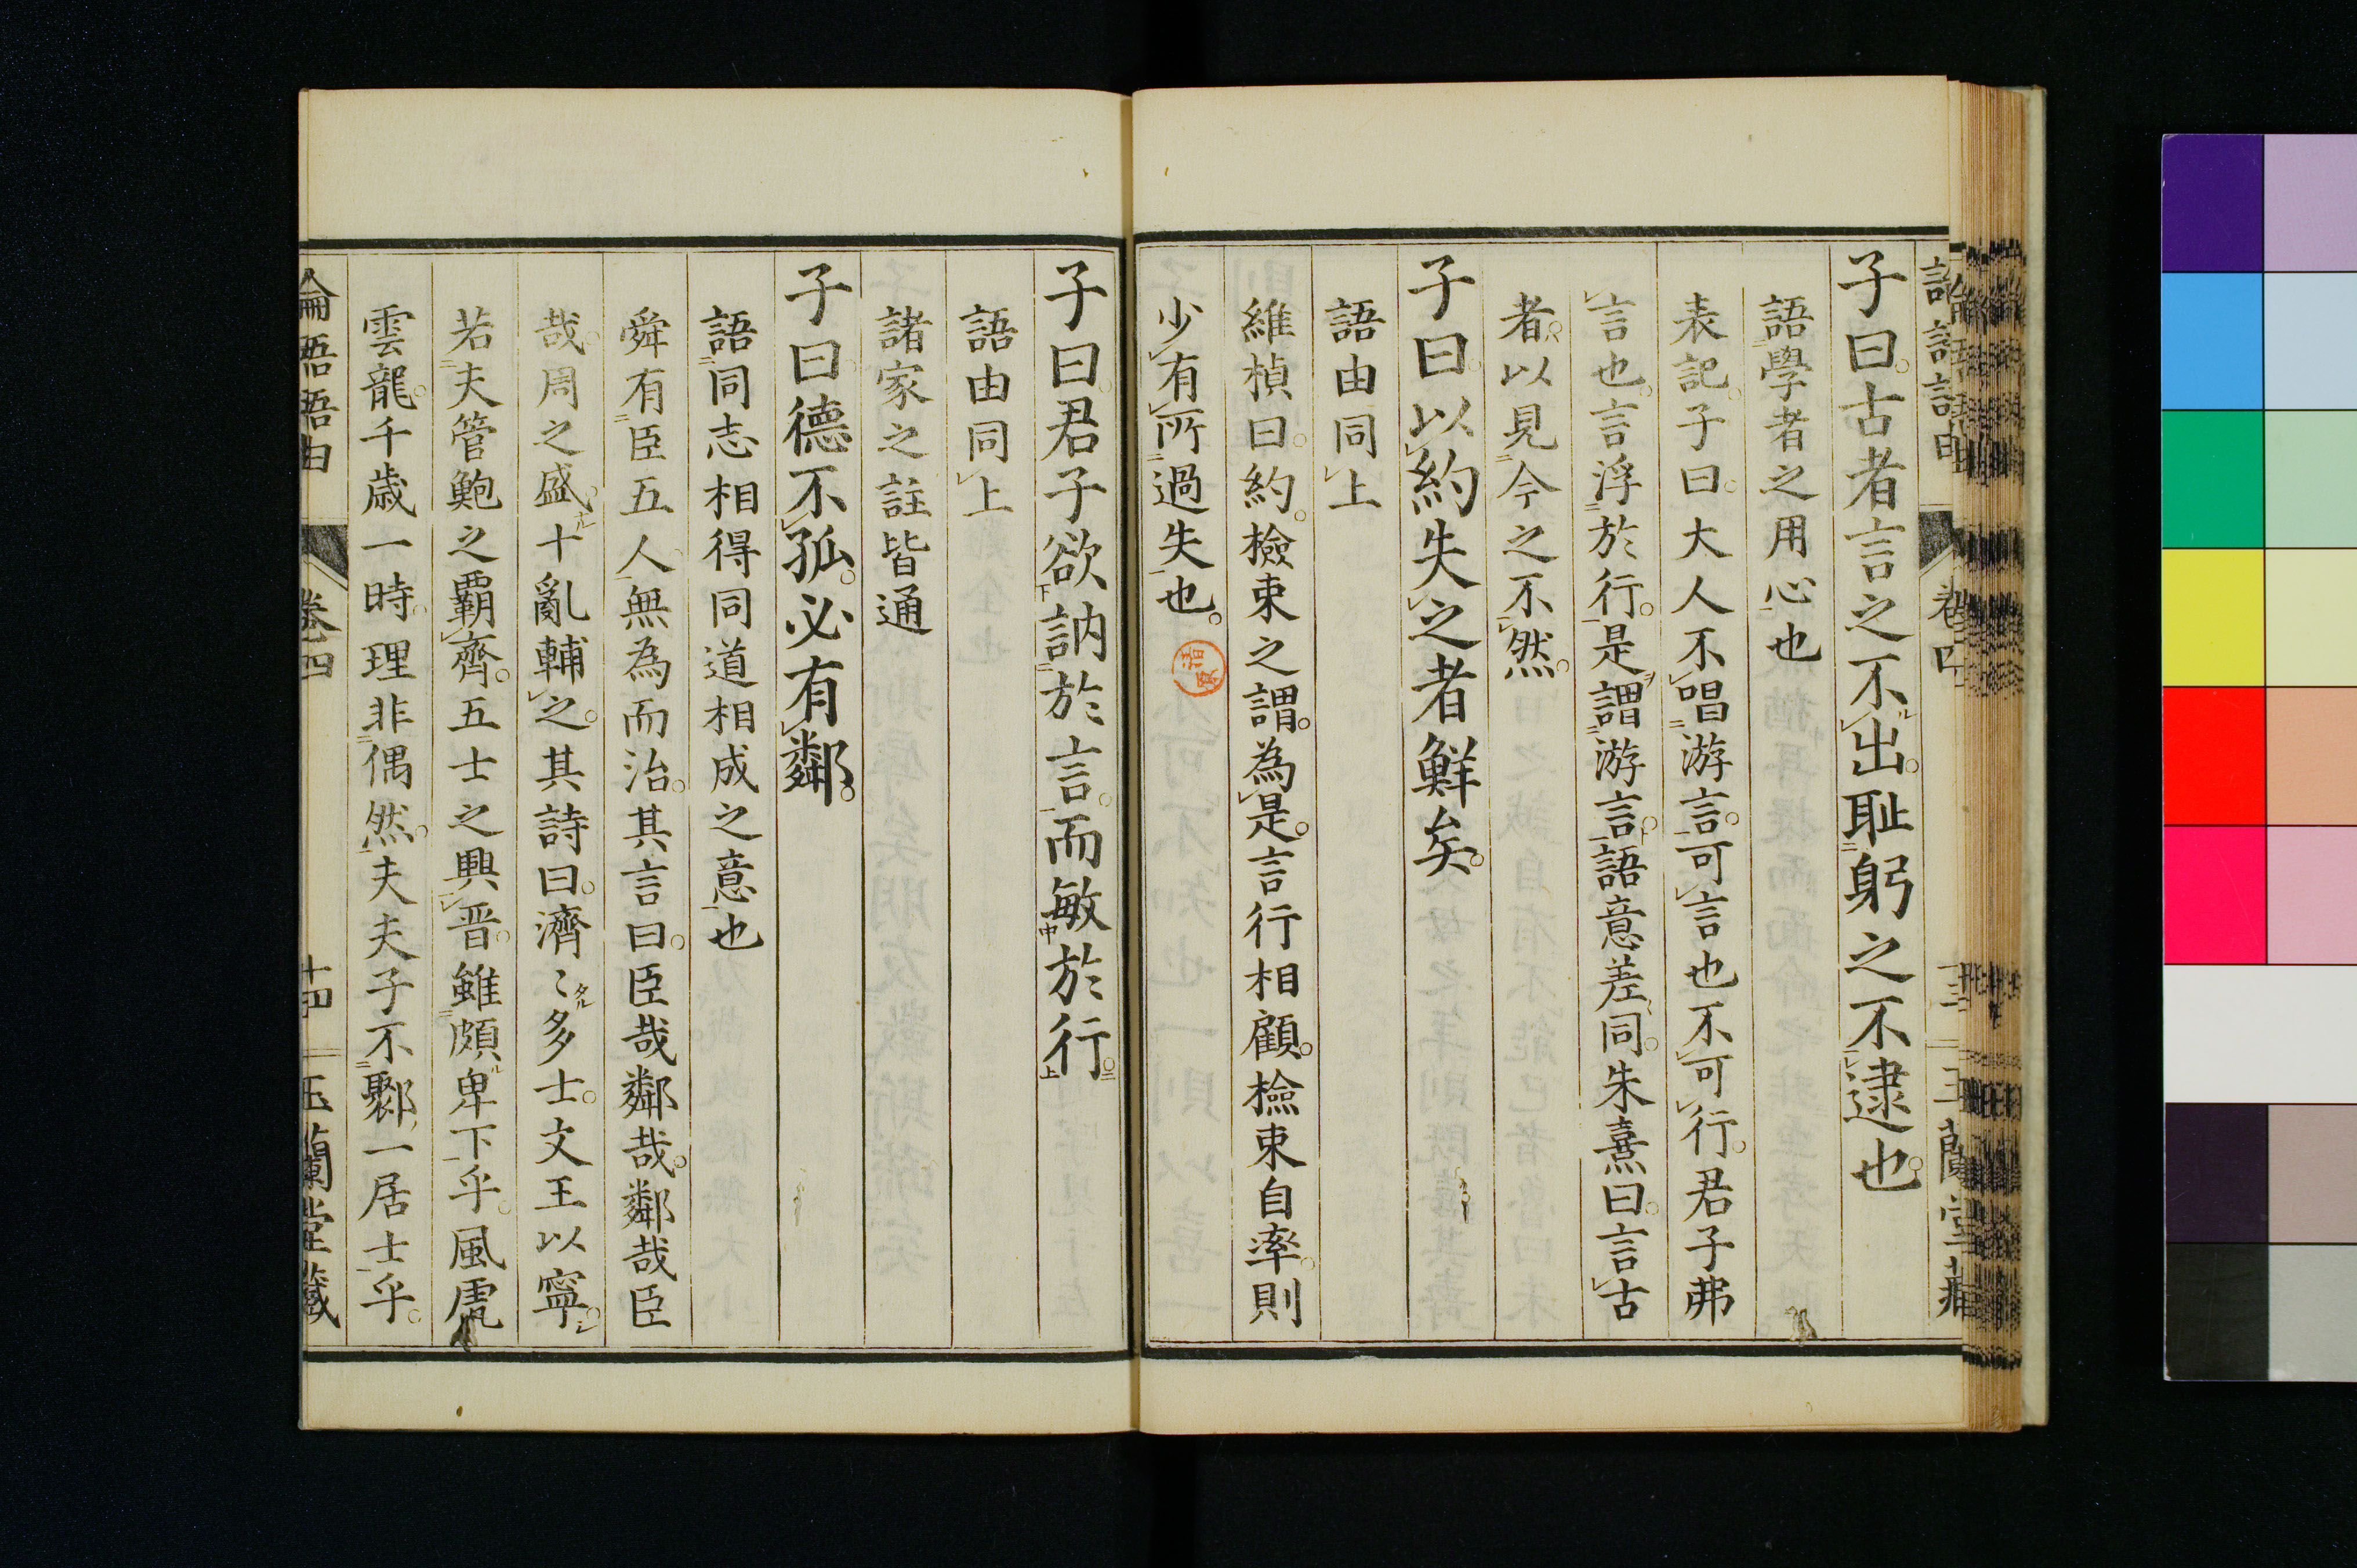 子曰。古者言之不出。耻躬之不逮也。
語學者之用心也
表記。子曰。大人不唱游言。可言也不可行。君子弗
言也。言浮於行。是謂游言。語意差同。朱熹曰。言古
者。以見今之不然。
子曰。以約失之者鮮矣。
語由同上
維楨曰。約。檢束之謂。為是。言行相顧。檢束自率。則
少有所過失也。
子曰。君子欲訥於言。而敏於行。
語由同上
諸家之註皆通
子曰德不孤。必有鄰。
語同志相得同道相成之意也
舜有臣五人無為而治。其言曰。臣哉鄰哉。鄰哉臣
哉。周之盛。十亂輔之。其詩曰。濟〻多士。文王以寧。
若夫管鮑之覇齊。五士之興晋。雖頗卑下乎。風虎
雲龍。千歳一時。理非偶然。夫夫子不鄹一居士乎。
論語語由 卷四 十四 玉蘭堂藏